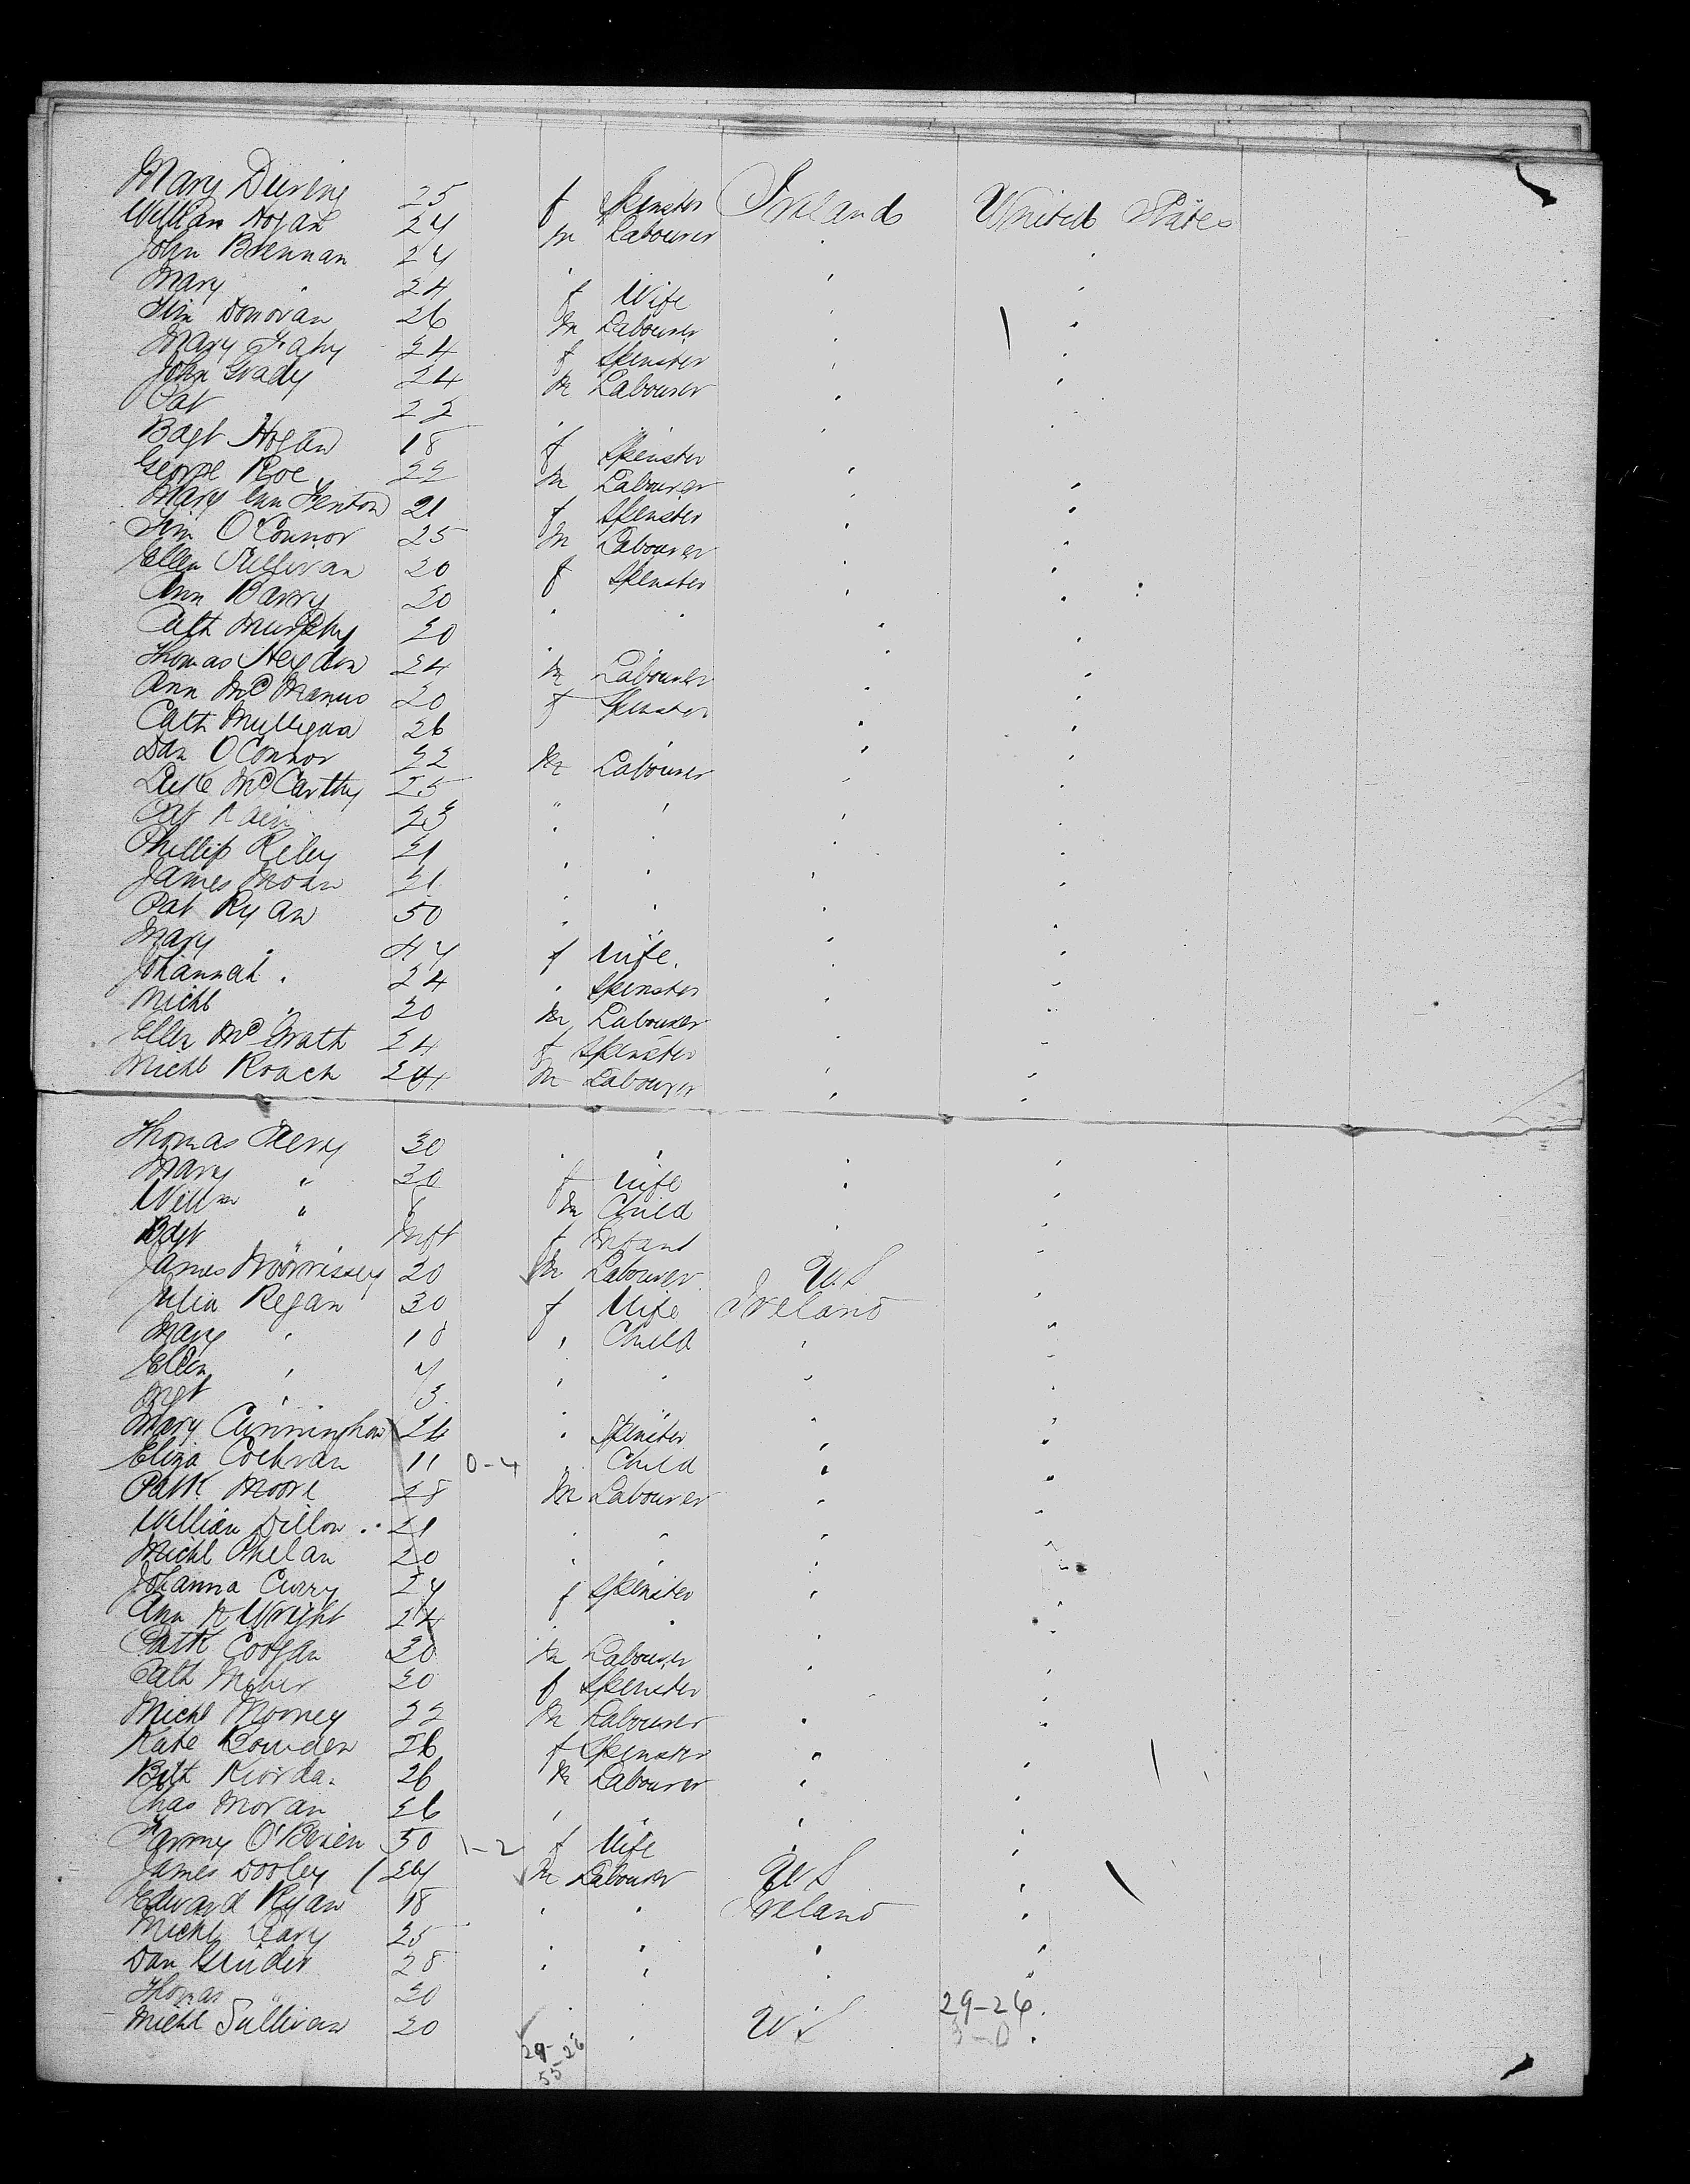 Mary 25 f Spinster Ireland United States
William Hogan 24 m Labourer
John Brennan 24 " " " "
Mary " 24 f Wife " "
Tim Donovan 26 m Labourer " "
Mary Fahy 24 f Spinster " "
John Grady 24 m Labourer " "
Pat 22 " " " "
Bagt Hogan 18 f Spinster
George Roe 22 m Labourer " "
Mary Ann Fenton 21 f Spinster " "
Tim O'Connor 25 m Labourer " "
Ellen Sullivan 20 f Spinster " "
Ann Barry 20 " " " "
Cath Murphy 20 " " " "
Thomas Heydon 24 m Labourer " "
Ann McManus 20 f Spinster " "
Cath Mulligan 26 " " " "
Dan O'Connor 22 m Labourer " "
Luke McCarthy 25 " " " "
Pat 23 " " " "
Phillip Riley 21 " " " "
James Moan 21 " " " "
Pat Ryan 50 " " " "
Mary " 44 f Wife " "
Johannah " 24 " Spinster " "
Michl " 20 m Labourer " "
Ellen McGrath 24 f Spinster " "
Michl Roach 24 m Labourer " "
Thomas 30 " " " "
Mary " 30 f Wife " "
Willm " m Child " "
Bdgt " Inft f Infant " "
James Morrissey 20 m Labourer U.S "
Julia Regan 30 f Wife Ireland "
Mary " 10 " Child " "
Ellen " " " " "
Mgt " 3 " " " "
Mary Cunningham 24 " Spinster " "
Eliza Cochran 11 0-4 " Child " "
Patk Moore 28 m Labourer " "
William Dillon 21 " " " "
Michl Phelan 20 " " " "
Johanna Curry 24 f Spinster " "
Ann Wright 24 " " " "
Patk Coogan 30 m Labourer " "
Cath Meher 20 f Spinster " "
Michl Mooney 22 m Labourer " "
Kate Bowden 26 f Spinster " "
26 m Labourer " "
Chas Moran 26 " " " "
Fanny O'Brien 50 1-2 f Wife " "
James Dooley 24 m Labourer U S "
Edward Ryan 18 " " Ireland "
Michl Leary 25 " " " "
Dan 28 " " " "
Thomas " 20 " " " 29-26.
Michl Sullivan 20 " U.S 3-0 "
29-26
55